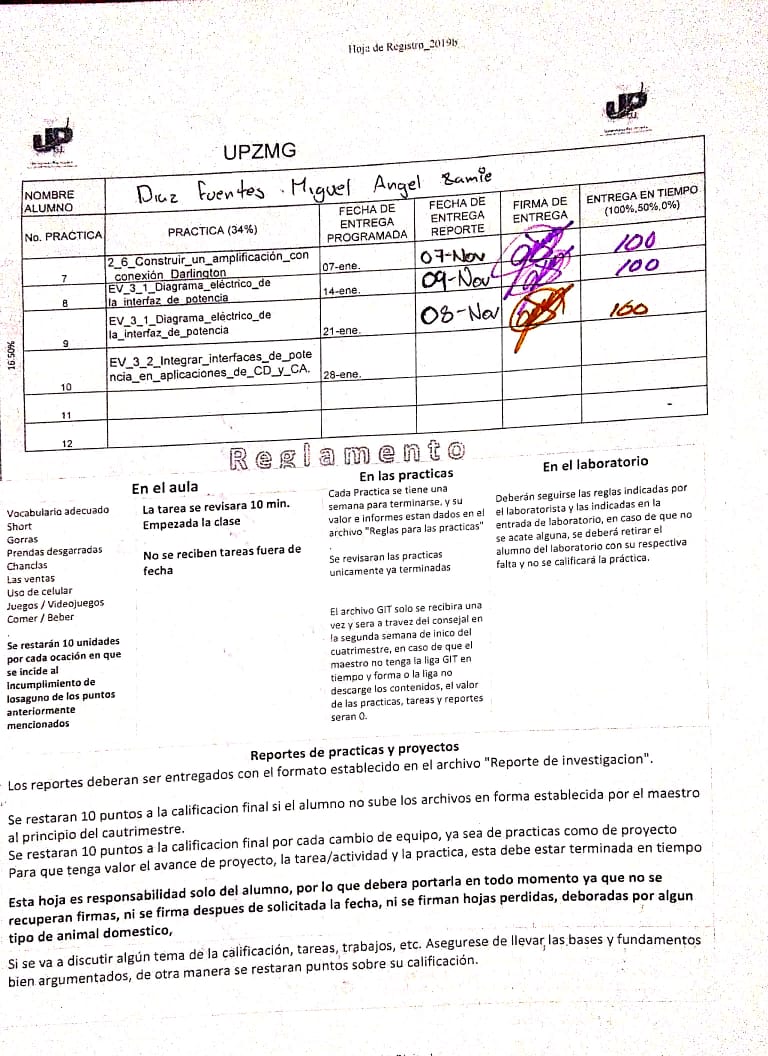 Hoja de Registro_2019b
UP
UP
UPZMG
NOMBRE ALUMNO
Diaz Fuentes. Miguel Angel
No. PRACTICA
PRACTICA (34%)
FECHA DE ENTREGA PROGRAMADA
FECHA DE ENTREGA REPORTE
FIRMA DE ENTREGA
ENTREGA EN TIEMPO (100%,50%,0%)
7
2_6_Construir_un_amplificación_con
_conexión_Darlington
07-ene.
07-Nov
100
8
EV_3_1_Diagrama_eléctrico_de
la_interfaz_de_potencia
14-ene.
09-Nov
100
9
EV_3_1_Diagrama_eléctrico_de
la_interfaz_de_potencia
21-ene.
08-Nov
100
10
EV_3_2_Integrar_interfaces_de_pote
ncia_en_aplicaciones_de_CD_y_CA.
28-ene.
11
12
16.50%
Reglamento
En el aula
Vocabulario adecuado
Short
Gorras
Prendas desgarradas
Chanclas
Las ventas
Uso de celular
Juegos / Videojuegos
Comer / Beber
Se restarán 10 unidades
por cada ocación en que
se incide al
incumplimiento de
losaguno de los puntos
anteriormente
mencionados
La tarea se revisara 10 min.
Empezada la clase
No se reciben tareas fuera de
fecha
En las practicas
Cada Practica se tiene una
semana para terminarse, y su
valor e informes estan dados en el
archivo "Reglas para las practicas"
.
Se revisaran las practicas
unicamente ya terminadas
El archivo GIT solo se recibira una
vez y sera a travez del consejal en
la segunda semana de inico del
cuatrimestre, en caso de que el
maestro no tenga la liga GIT en
tiempo y forma o la liga no
descarge los contenidos, el valor
de las practicas, tareas y reportes
seran 0.
En el laboratorio
Deberán seguirse las reglas indicadas por
el laboratorista y las indicadas en la
entrada de laboratorio, en caso de que no
se acate alguna, se deberá retirar el
alumno del laboratorio con su respectiva
falta y no se calificará la práctica.
Reportes de practicas y proyectos
Los reportes deberan ser entregados con el formato establecido en el archivo "Reporte de investigacion".
Se restaran 10 puntos a la calificacion final si el alumno no sube los archivos en forma establecida por el maestro
al principio del cautrimestre.
Se restaran 10 puntos a la calificacion final por cada cambio de equipo, ya sea de practicas como de proyecto
Para que tenga valor el avance de proyecto, la tarea/actividad y la practica, esta debe estar terminada en tiempo
Esta hoja es responsabilidad solo del alumno, por lo que debera portarla en todo momento ya que no se
recuperan firmas, ni se firma despues de solicitada la fecha, ni se firman hojas perdidas, deboradas por algun
tipo de animal domestico,
Si se va a discutir algún tema de la calificación, tareas, trabajos, etc. Asegurese de llevar las bases y fundamentos
bien argumentados, de otra manera se restaran puntos sobre su calificación.